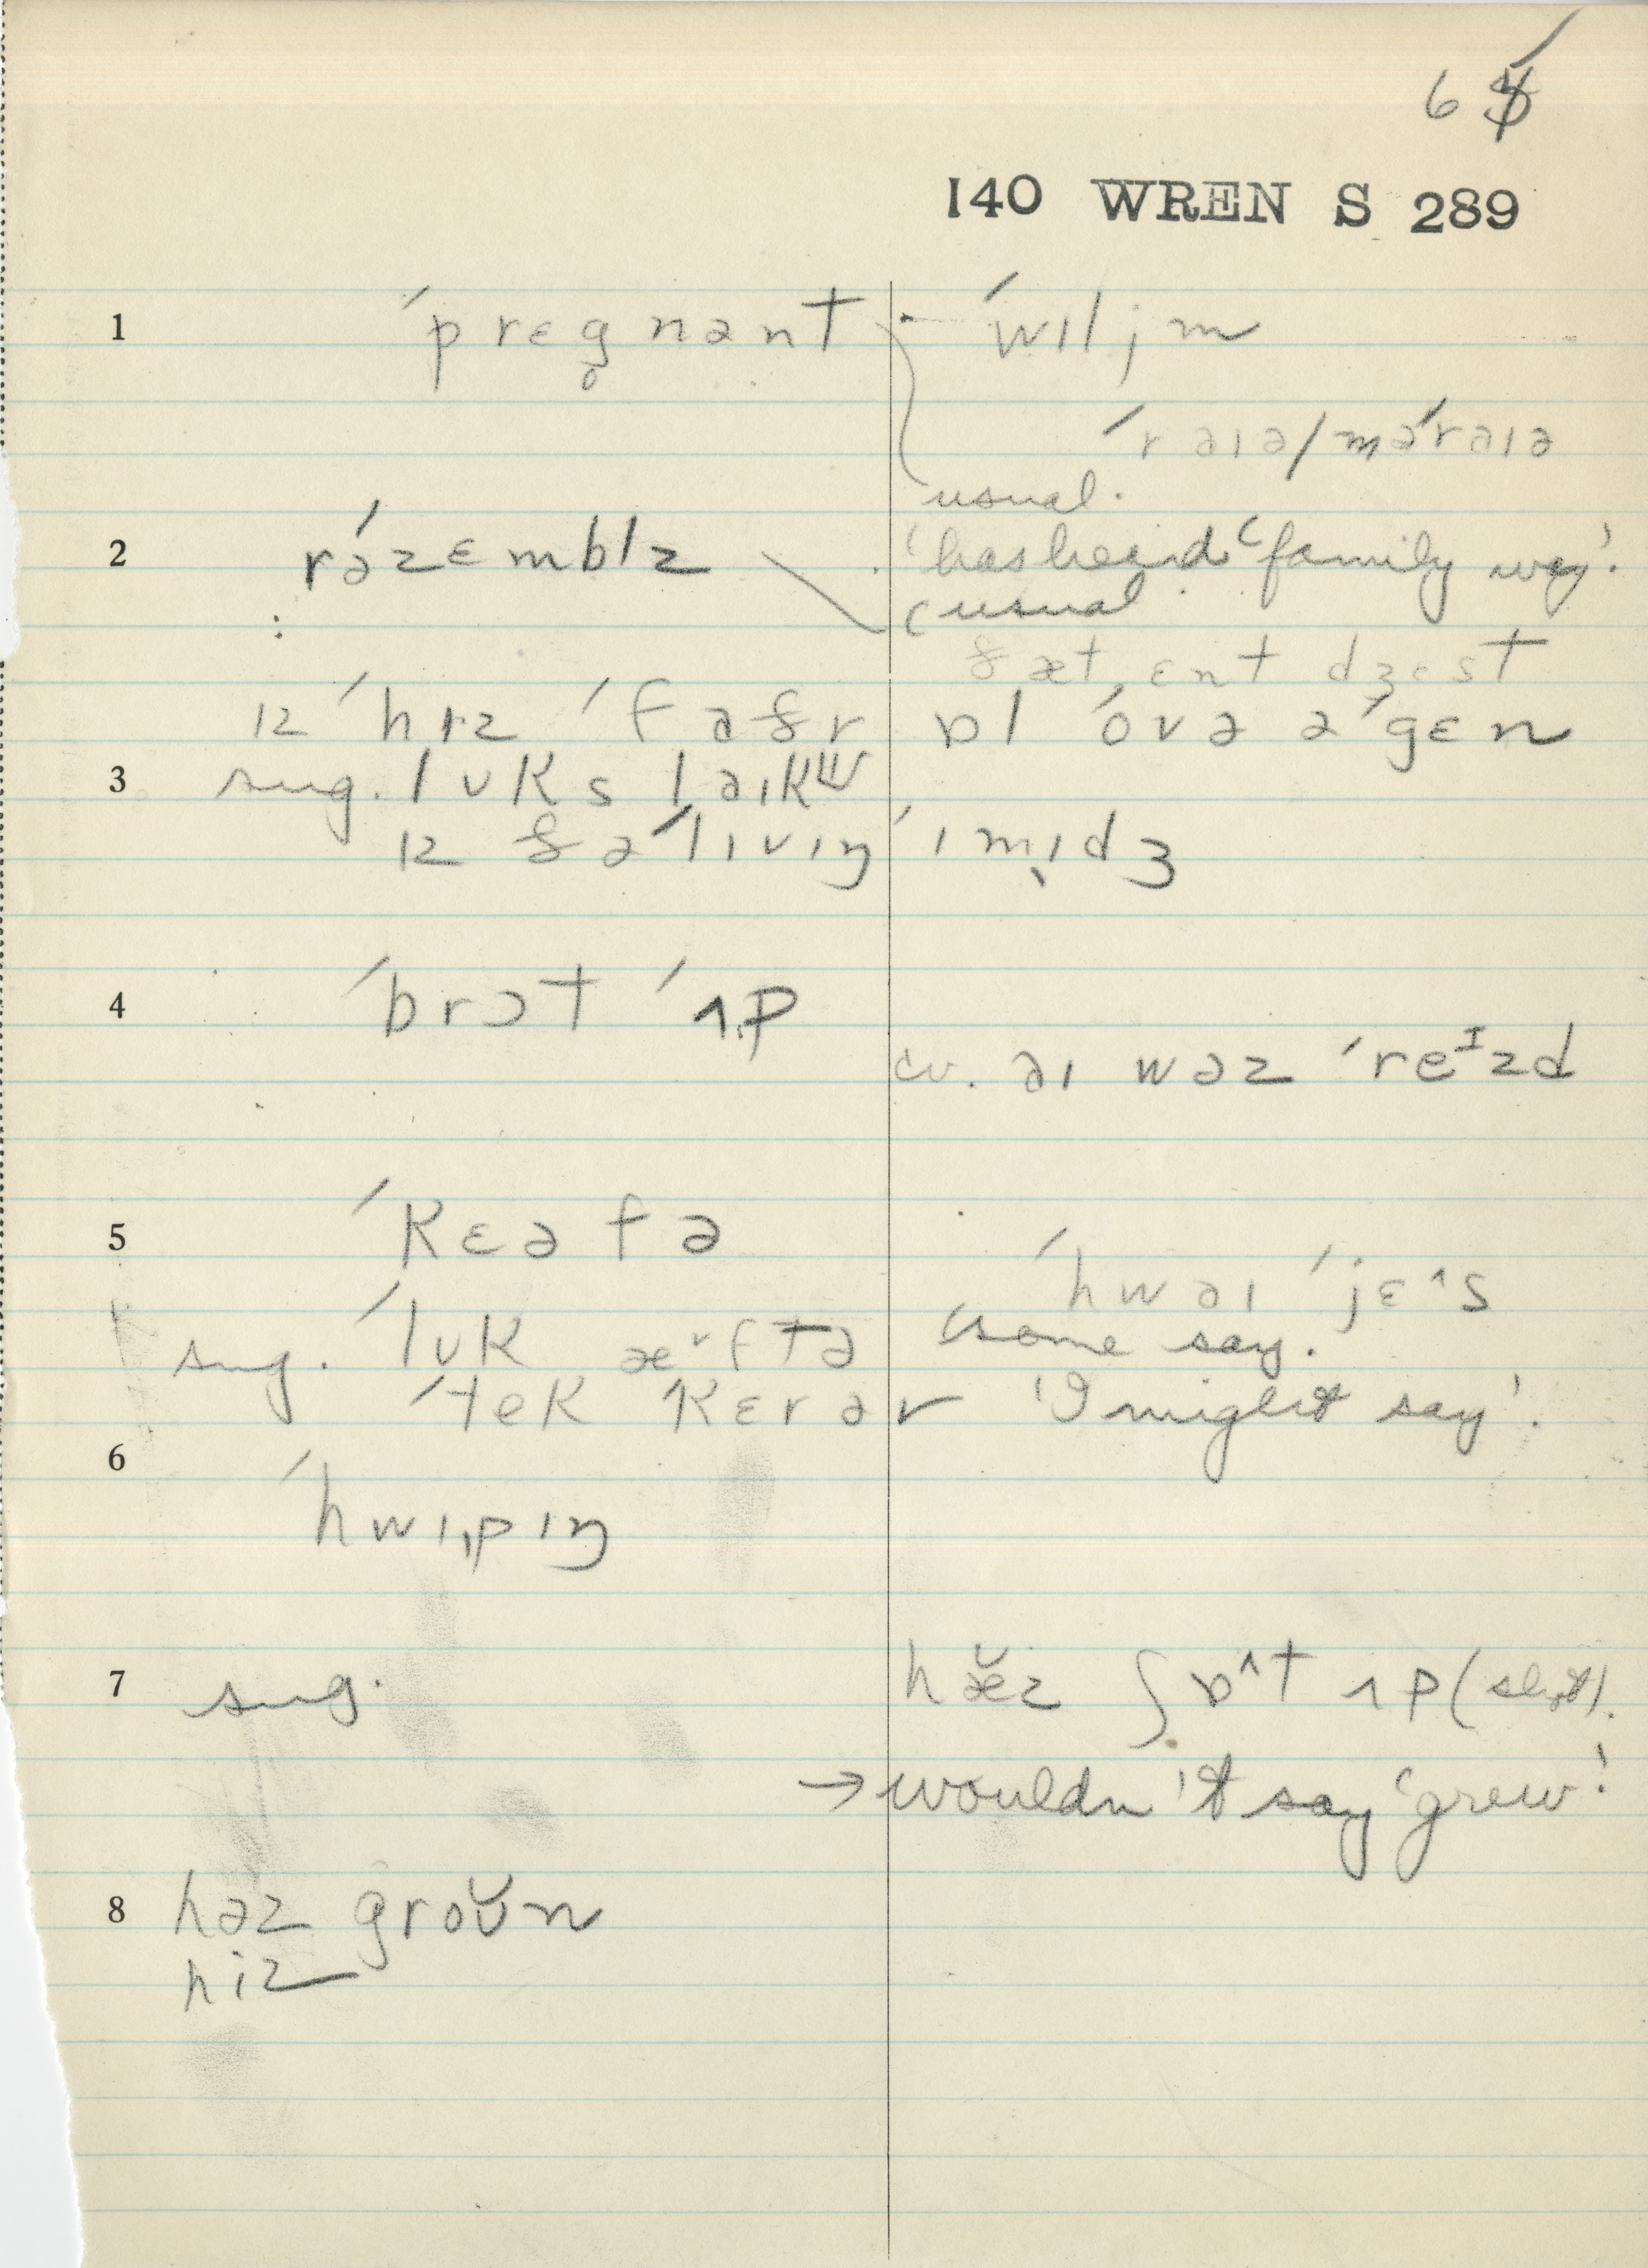 6
140 WREN S 289
1 ´prɛg̥nənt ´wɪljm
´rəɪə/mə´rəɪə
usual.
2 rə´zɛmblz 'has heard 'family way'.
(usual
ðæt ɛnt dʒɛst
ɪz ´hɪz ´faðr ɒl ´ovə ə´gɛn
3 sug. lʊks ləɪk
ɪz ðə ´lɪvɪŋ ´ɪmɪdʒ
4 ´brɔt ´ʌp
cv. əɪ wəz ´reᴵzd
5 ´kɛəfə
´hwəɪ ´jɛ^s
sug. ´lʊk æ˅ftə (some say.
´tek ´kɛrər 'I might say'.
6
´hwɪpɪŋ
7 sug. hæ̆z ʃɒ^t ʌp (slight).
→ wouldn't say 'grew'.
8 həz groʊ̆n
hiz